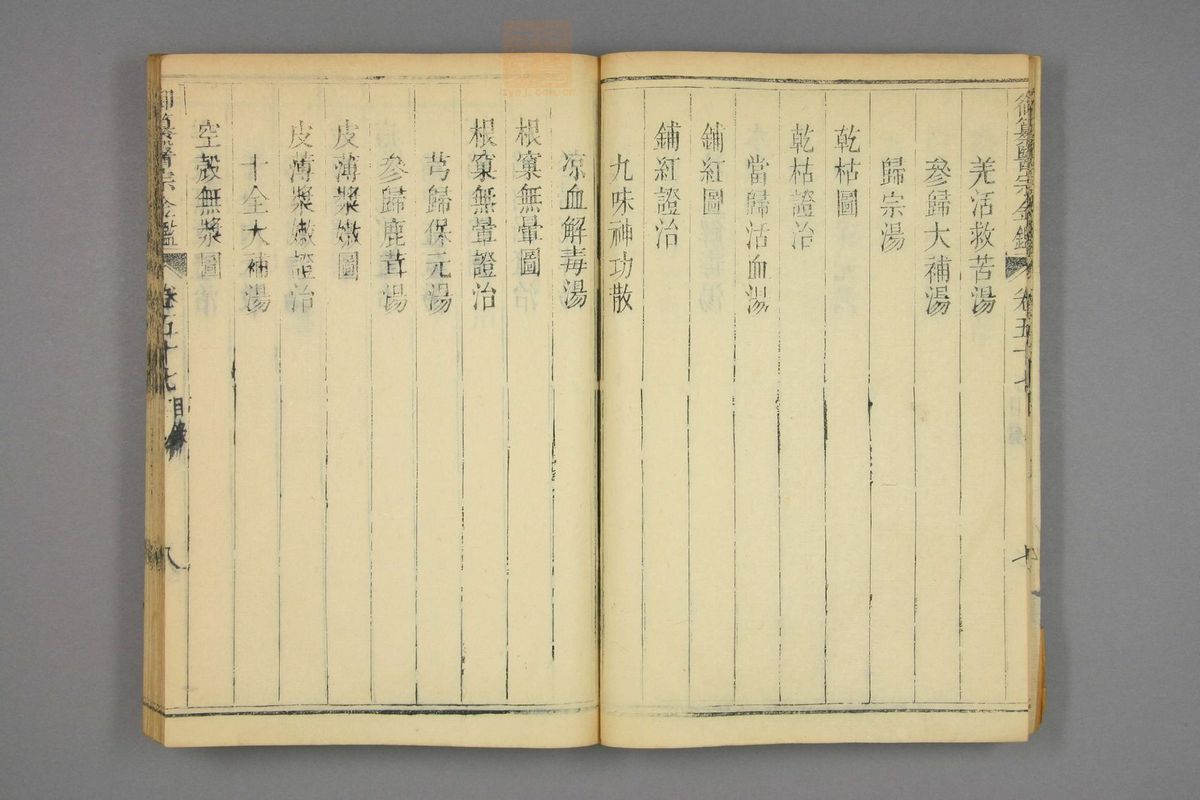 御纂醫宗金鑑 卷五十七 目錄 七
羗活救苦湯
參歸大補湯
歸宗湯
乾枯圖
乾枯證治
當歸活血湯
鋪紅圖
鋪紅證治
九味神功散
凉血解毒湯
根窠無暈圖
根窠無暈證治
芎歸保元湯
參歸鹿茸湯
皮薄漿嫩圖
皮薄漿嫩證治
十全大補湯
空殼無漿圖
御纂醫宗金鑑 卷五十七 目錄 八